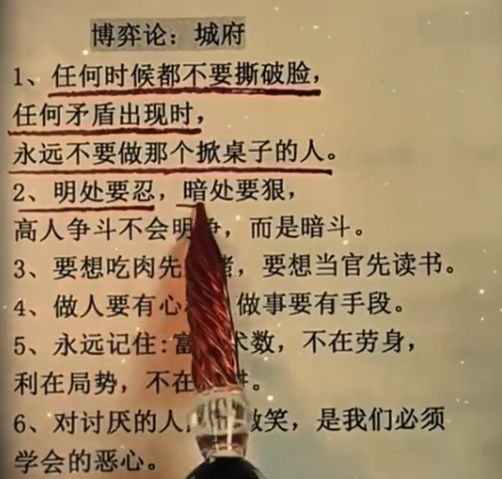 博弈论：城府
1、任何时候都不要撕破脸，
任何矛盾出现时，
永远不要做那个掀桌子的人。
2、明处要忍，暗处要狠，
高人争斗不会明争，而是暗斗。
3、要想吃肉先，要想当官先读书。
4、做人要有心，做事要有手段。
5、永远记住:富术数，不在劳身，
利在局势，不在。
6、对讨厌的人微笑，是我们必须
学会的恶心。